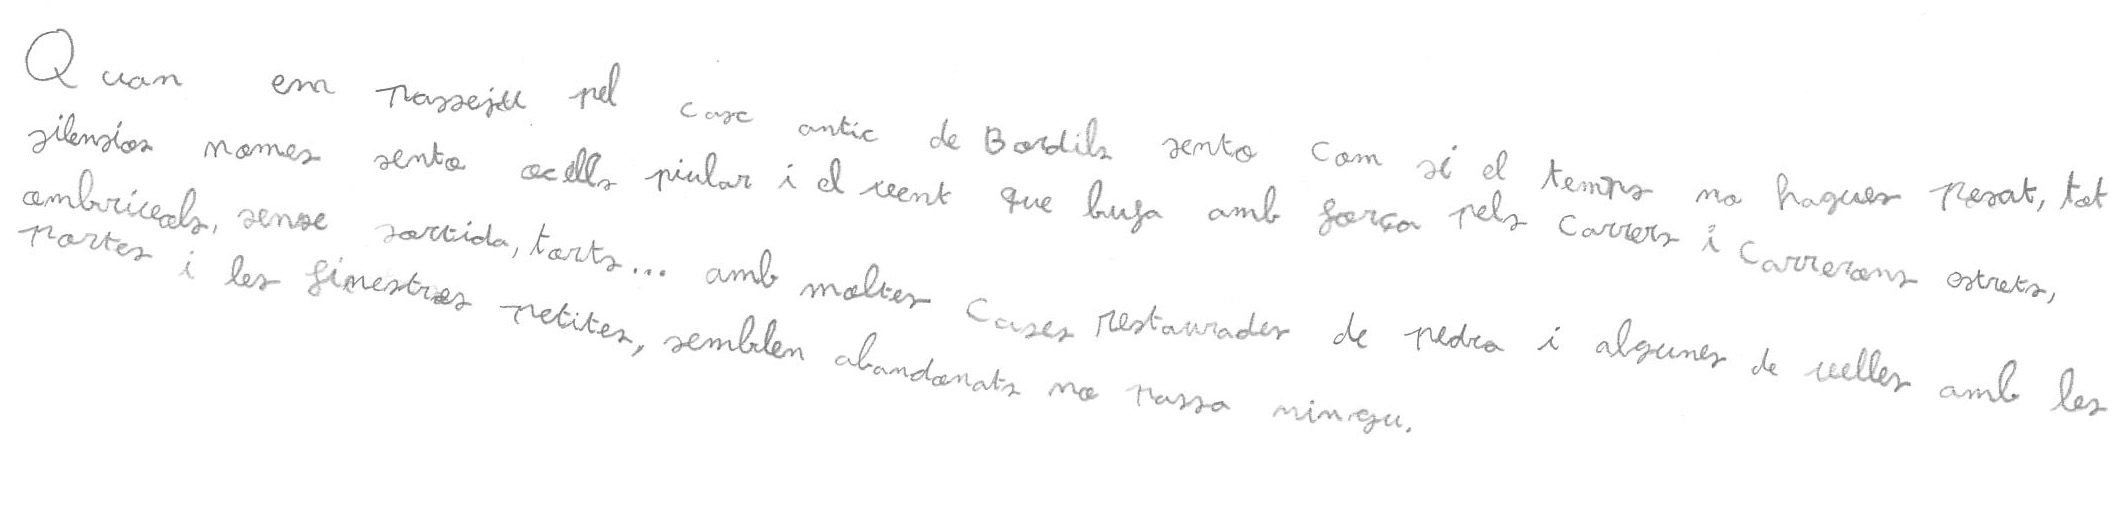 Quan em passeju pel casc antic de Bordils sento com si el temps no hagues pasat, tot
silensios nomes sento ocells piular i el vent que bufa amb força pels carrers i carrerons estrets,
ambricals, sense sortida, torts... amb moltes cases restaurades de pedra i algunes de velles amb les
portes i les finestres petites, semblen abandonats no passa ningu.